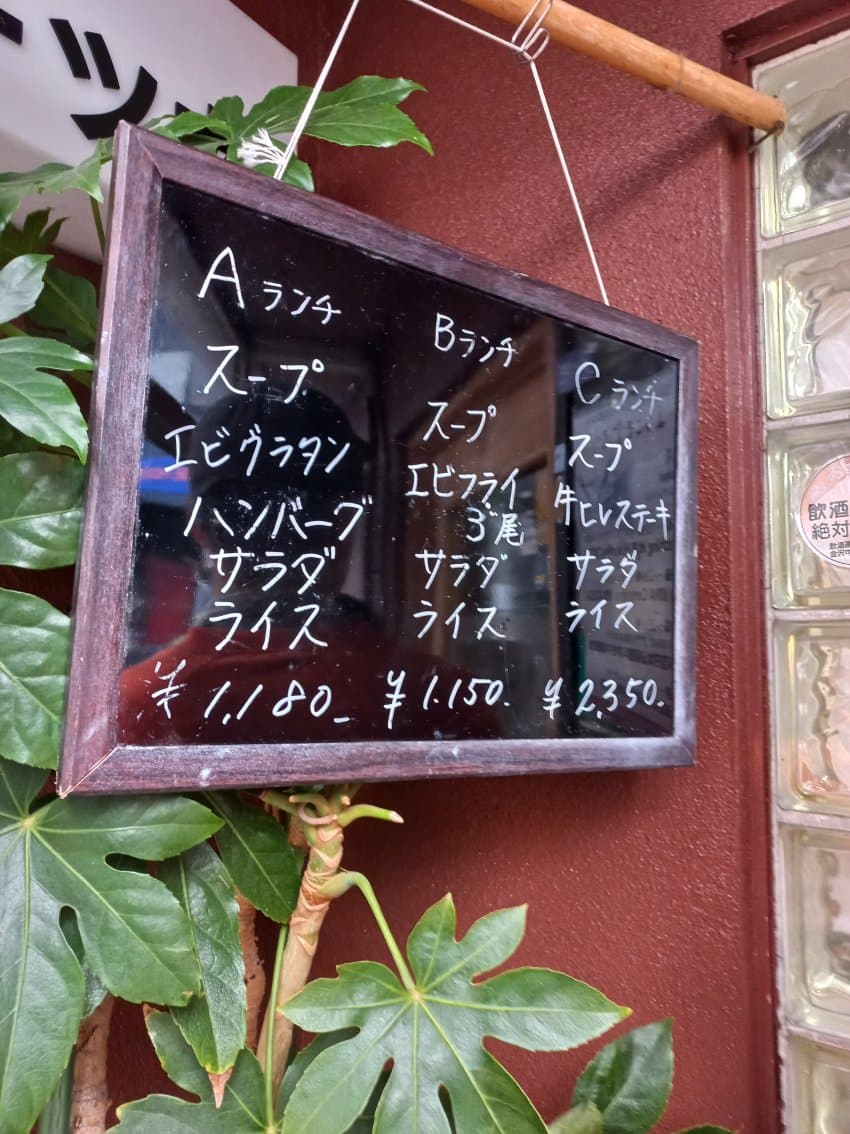 ツ
Aランチ
スープ
エビグラタン
ハンバーグ
サラダ
ライス
¥1.180_
Bランチ
スープ
エビフライ
3尾
サラダ
ライス
¥1.150.
Cランチ
スープ
牛ヒレステーキ
サラダ
ライス
¥2.350.
飲酒
絶対